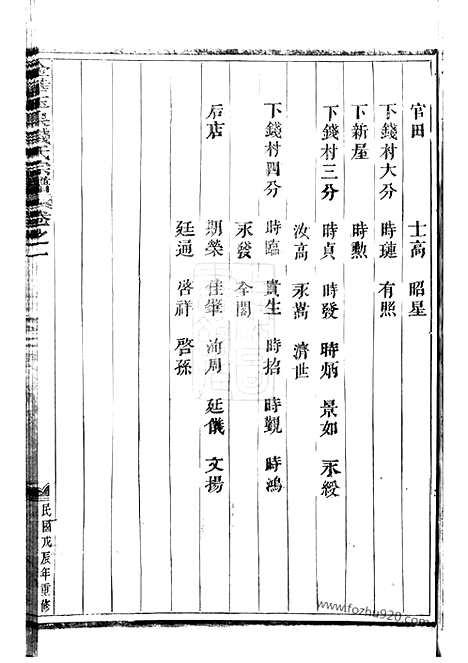 官田 士高 昭星
下錢村大分 時璉 有照
下新屋 時勲
下錢村三分 時貞 時發 時炳 景如 永綬
汝高 永萬 濟世
下錢村四分 時臨 貴生 時招 時觀 時鴻
永發 全閣
后店 期榮 佳肇 洵周 廷儀 文揚
廷通 啓祥 啓孫
氏宗譜 卷之一
民國戊辰年重修
www.fozhu920.com